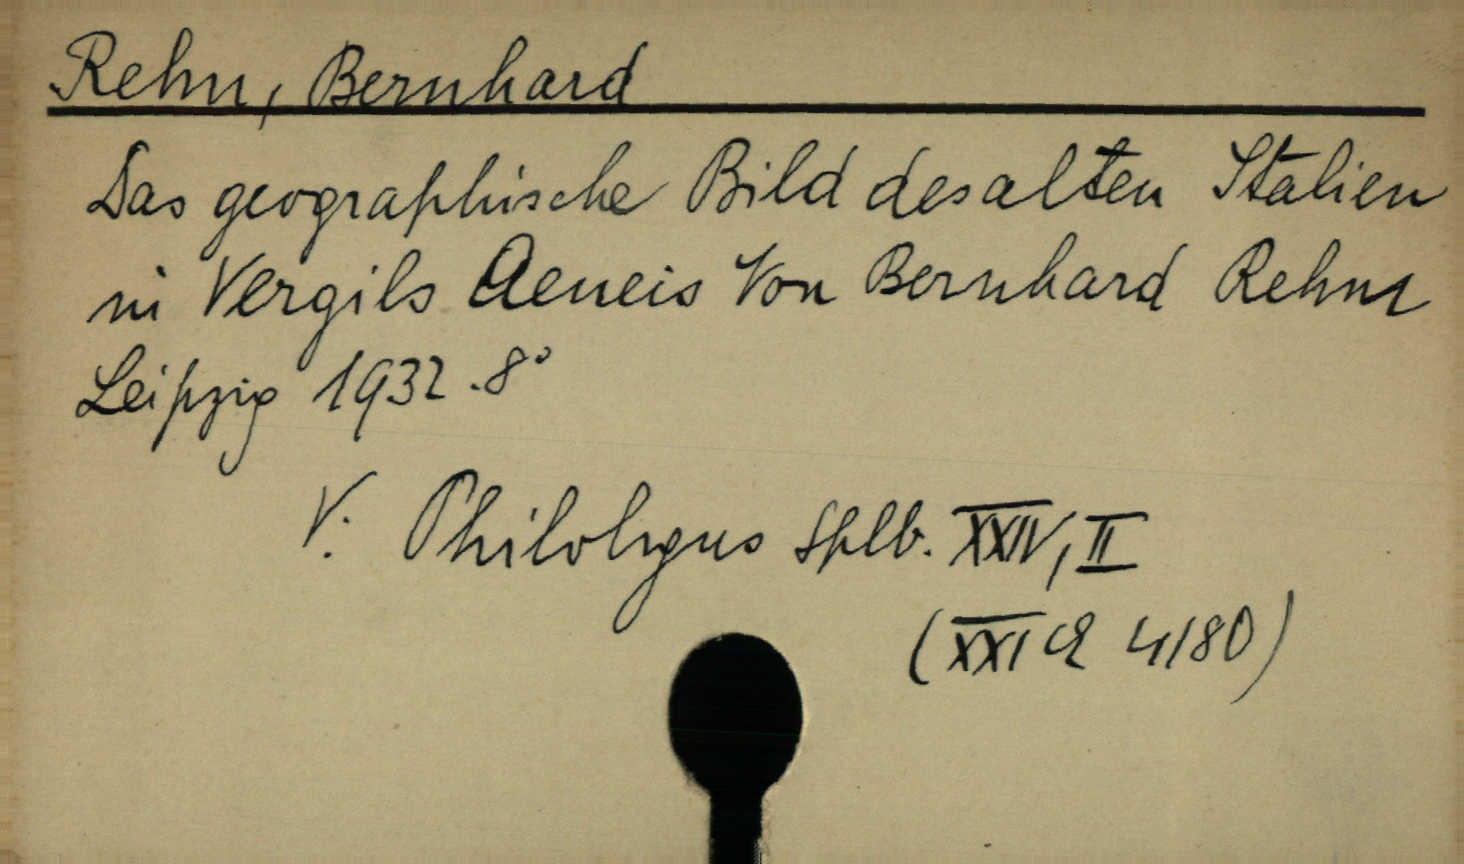 Rehn, Bernhard
Das geographische Bild des alten Italien
in Vergils Aeneis Von Bernhard Rehm
Leipzig 1932. 8°
V. Philologus Splb. XXIV, II
(XXI 4180)